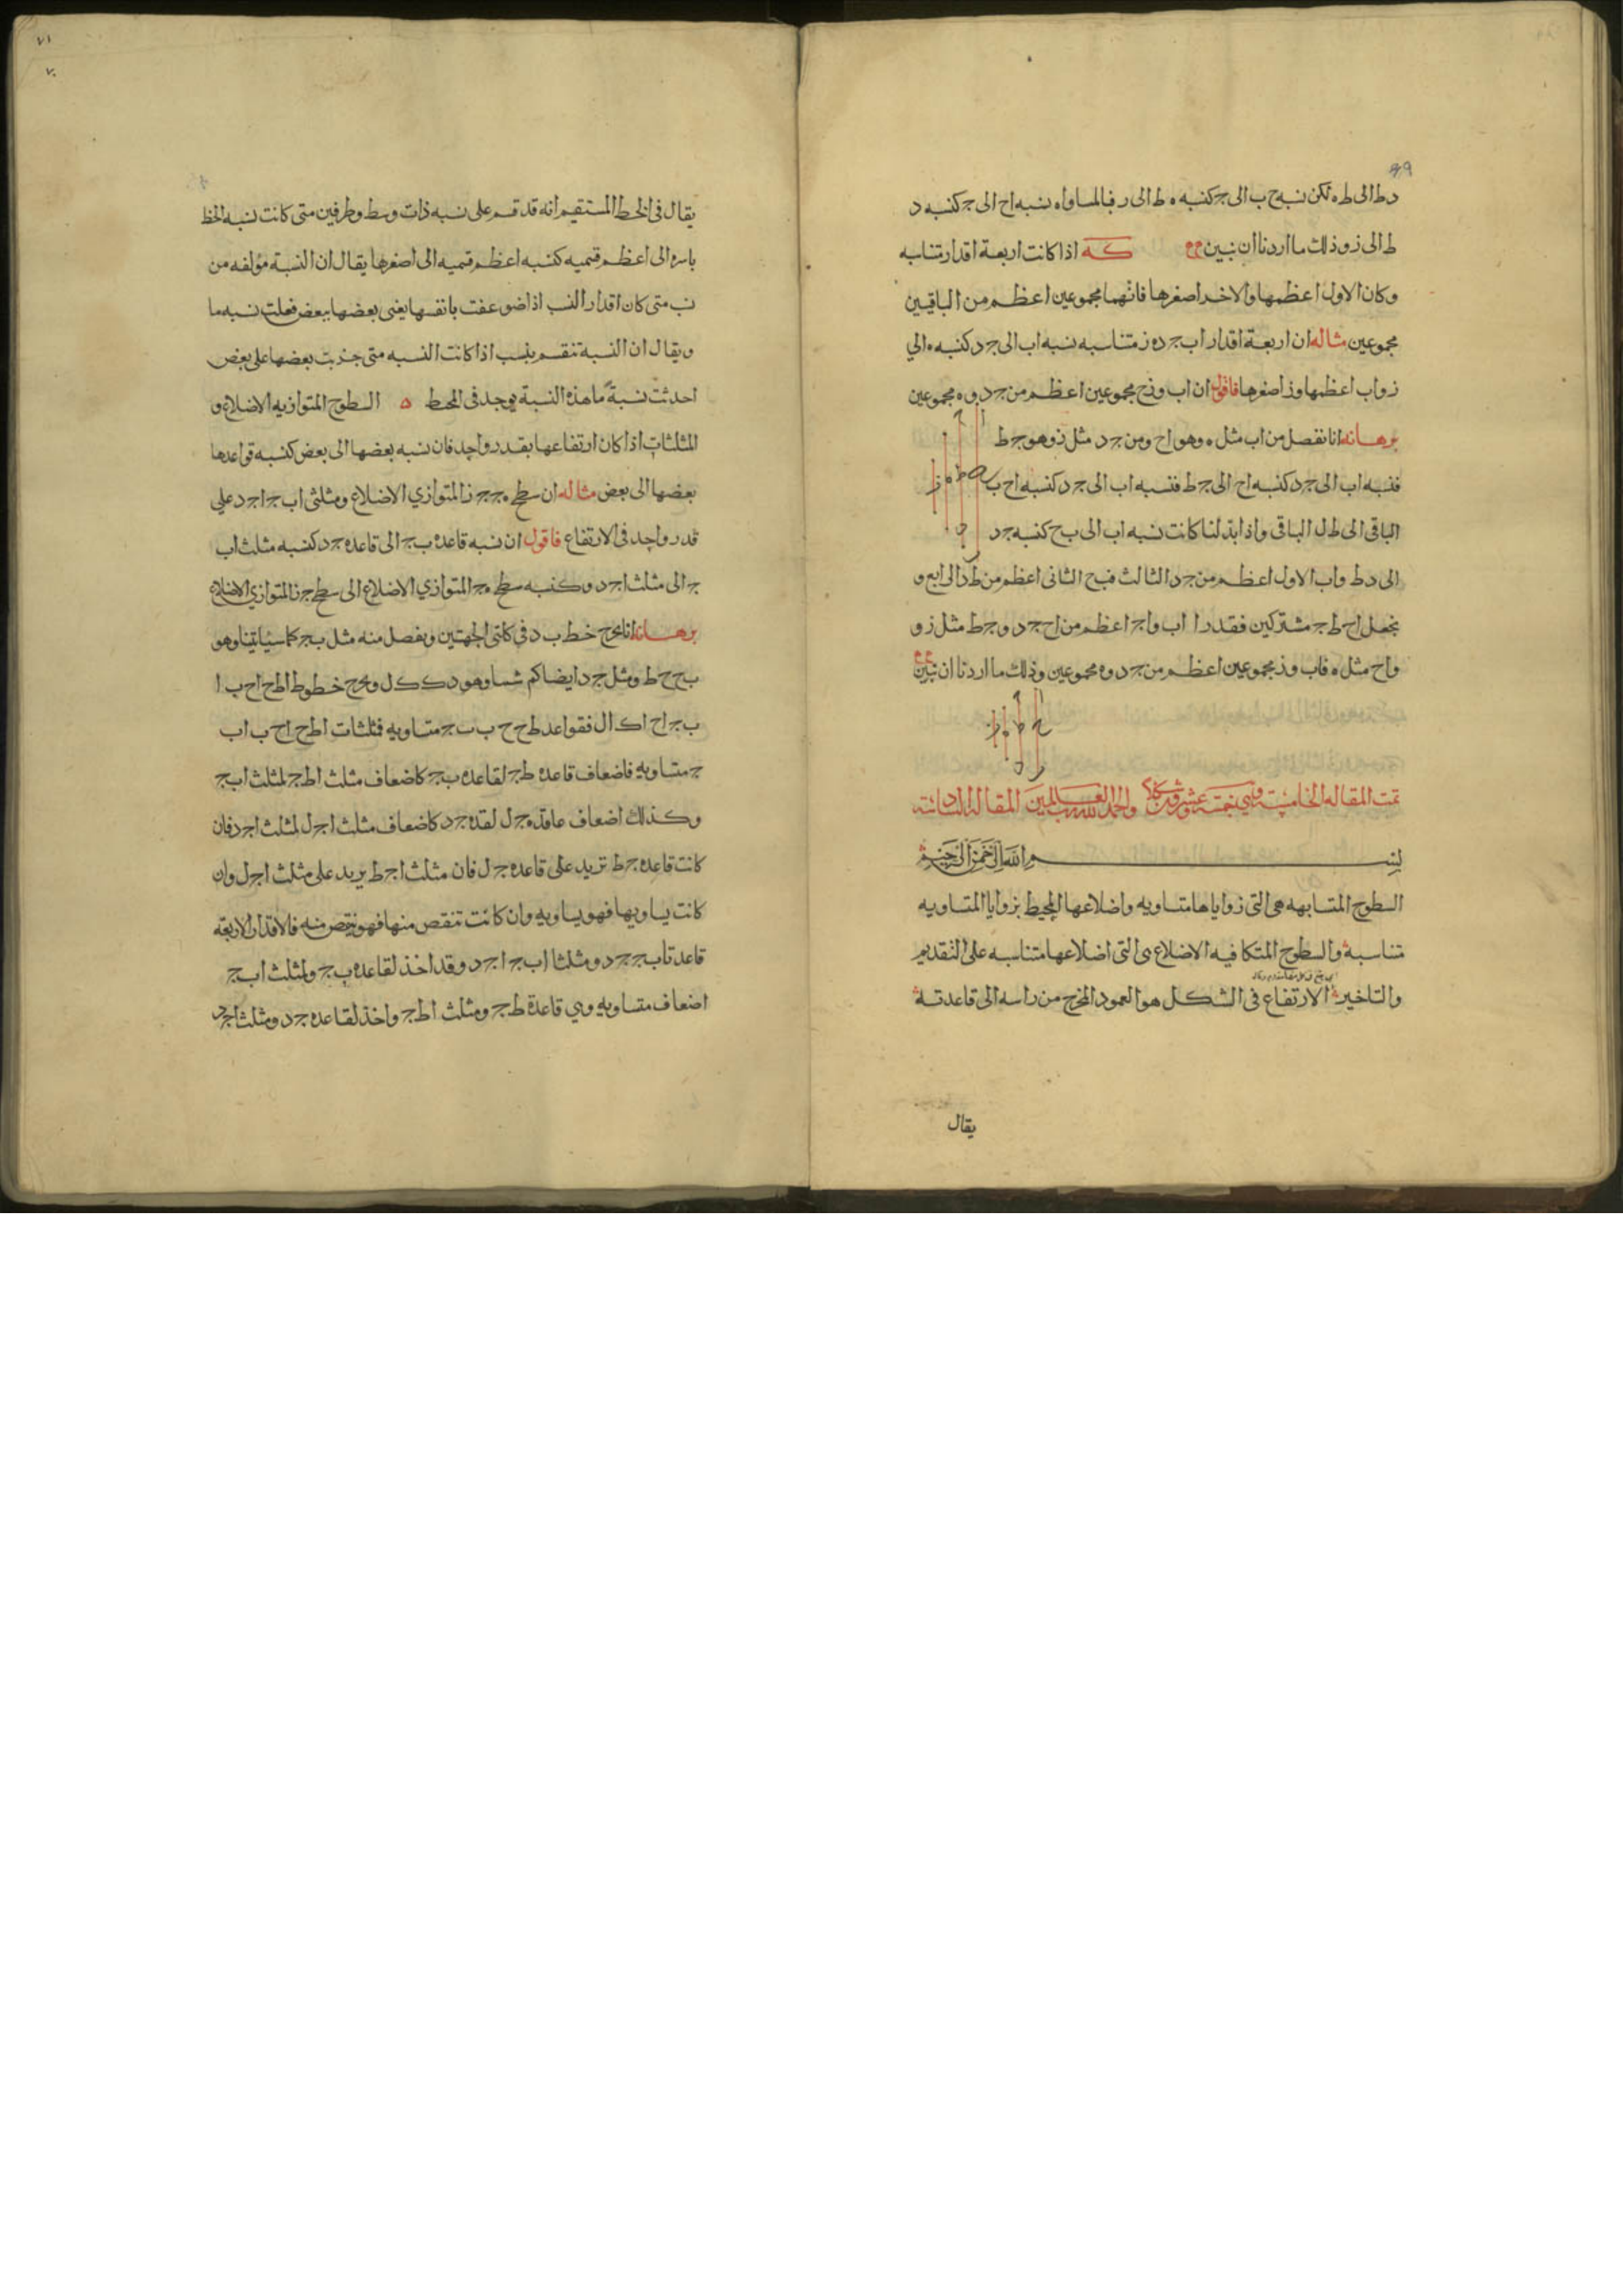 ٦٩
د ط الى ط ه لكن نسبة ح ب الى ج كنسبه ه ط الى ر فبالمساواه نسبه اح الى ج كنسبه د
ط الى ز وذلك ما اردنا ان نبين كه اذا كانت اربعة اقدار متناسبه
وكان الاول اعظمها والاخر اصغرها فانهما مجموعين اعظم من الباقيين
مجموعين مثاله ان اربعة اقدار اب جد ه ز متناسبه نسبه اب الى جد كنسبه ه الى
ز واب اعظمها وز اصغرها فاقول ان اب وزح مجموعين اعظم من جد وه مجموعين
برهانه انا نفصل من اب مثل ه وهو اح ومن جد مثل ز وهو جط
فنسبه اب الى جد كنسبه اح الى جط فنسبه اب الى جد كنسبه اح ب
الباقى الى ط ل الباقى واذا بدلنا كانت نسبه اب الى بح كنسبه جد
الى دط واب الاول اعظم من جد الثالث فبح الثانى اعظم من طد الرابع و
نجعل اح جط مشتركين فقدرا اب واج اعظم من اح جد وجط مثل ز و
واح مثل ه فاب وز مجموعين اعظم من جد وه مجموعين وذلك ما اردنا ان نبين
تمت المقاله الخامسة وهي خمسة وعشرون شكلا والحمد لله رب العالمين المقاله السادسة
بسم الله الرحمن الرحيم
السطوح المتشابهه هى التى زواياها متساويه واضلاعها المحيط بزوايا المتساويه
متناسبة والسطوح المتكافيه الاضلاع هى التى اضلاعها متناسبه على التقديم
والتاخير الارتفاع فى الشكل هو العمود المخرج من راسه الى قاعدته
يقال
٧١
٧٠
يقال فى الخط المستقيم انه قد قسم على نسبه ذات وسط وطرفين متى كانت نسبه الخط
باسره الى اعظم قسميه كنسبه اعظم قسميه الى اصغرها يقال ان النسبة مؤلفه من
نسب متى كان اقدار النسب اذا ضوعفت بانفسها يعنى بعضها ببعض فعلت نسبه ما
ويقال ان النسبة تنقسم بنسب اذا كانت النسبه متى جزيت بعضها على بعض
احدثت نسبة ما هذه النسبة يوجد فى المحط ه السطوح المتوازيه الاضلاع و
المثلثات اذا كان ارتفاعها بقدر واحد فان نسبه بعضها الى بعض كنسبه قواعدها
بعضها الى بعض مثاله ان سطح ه ج ج ز المتوازي الاضلاع ومثلثى اب ج اجد على
قدر واحد فى الارتفاع فاقول ان نسبه قاعده بج الى قاعده جد كنسبه مثلث اب
ج الى مثلث اجد وكنسبه سطح ه ج المتوازي الاضلاع الى سطح جز المتوازي الاضلاع
برهانه انا نخرج خط ب د فى كلتى الجهتين ونفصل منه مثل بج كما شينا وهو
بح ح ط ومثل جد ايضا كم شئنا وهو دك ك ل ونخرج خطوط اط اح اب ا
ب ج اح اك ال فقواعد طح ح ب ب ج متساويه فمثلثات اطح اح ب اب
ج متساويه فاضعاف قاعده طج لقاعده بج كاضعاف مثلث اطج لمثلث ابج
وكذلك اضعاف قاعده جل لقاعده جد كاضعاف مثلث اجل لمثلث اجد فان
كانت قاعده جط تزيد على قاعده جل فان مثلث اجط يزيد على مثلث اجل وان
كانت يساويها فهو يساويه وان كانت تنقص منها فهو ينقص منه فالاقدار الاربعه
قاعدتا بج جد ومثلثا ابج اجد وقد اخذ لقاعده بج ولمثلث ابج
اضعاف متساويه وهي قاعدة طج ومثلث اطج واخذ لقاعده جد ومثلث اجد